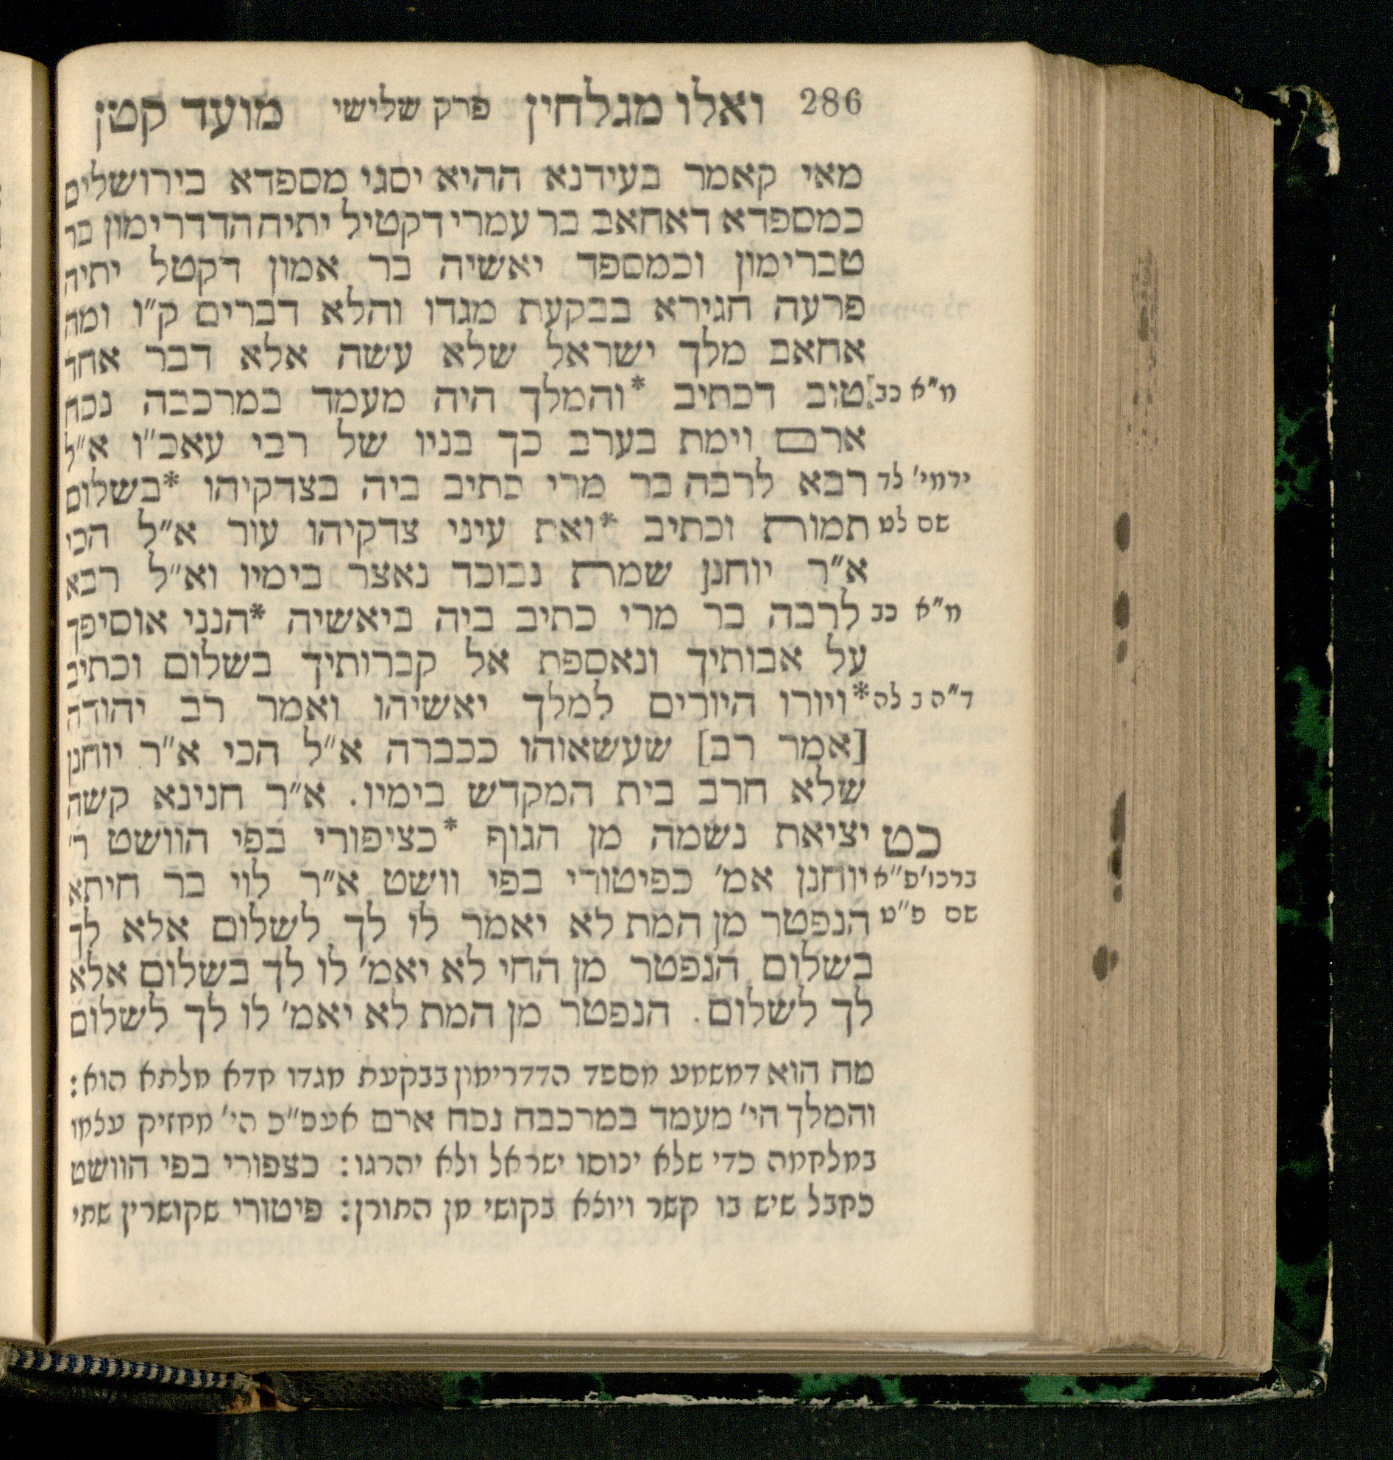 286 ואלו מגלחין פרק שלישי מועד קטן
מאי קאמר בעידנא ההיא יסגי מספדא בירושלים
כמספדא דאחאב בר עמרי דקטיל יתיה הדדרימון בר
טברימון וכמספד יאשיה בר אמון דקטל יתיה
פרעה חגירא בבקעת מגדו והלא דברים ק״ו ומה
אחאב מלך ישראל שלא עשה אלא דבר אחד
מ״א כב] טוב דכתיב *והמלך היה מעמד במרכבה נכח
ארם וימת בערב כך בניו של רבי עאכ״ו א״ל
ירמי׳ לד רבא לרבה בר מרי כתיב ביה בצדקיהו *בשלום
שם לט תמות וכתיב *ואת עיני צדקיהו עור א״ל הכי
א״ר יוחנן שמת נבוכד נאצר בימיו וא״ל רבא
מ״א כב לרבה בר מרי כתיב ביה ביאשיה *הנני אוסיפך
על אבותיך ונאספת אל קברותיך בשלום וכתיב
ד״ה ב לה *ויורו היורים למלך יאשיהו ואמר רב יהודה
[אמר רב] שעשאוהו ככברה א״ל הכי א״ר יוחנן
שלא חרב בית המקדש בימיו. א״ר חנינא קשה
כט יציאת נשמה מן הגוף *כציפורי בפי הוושט ר׳
ברכו׳ פ״א יוחנן אמ׳ כפיטורי בפי וושט א״ר לוי בר חיתא
שם פ״ט הנפטר מן המת לא יאמר לו לך לשלום אלא לך
בשלום הנפטר מן החי לא יאמ׳ לו לך בשלום אלא
לך לשלום. הנפטר מן המת לא יאמ׳ לו לך לשלום
מח הוא דמשמע מספד הדדרימון בבקעת מגדו חדא מלתא הוא:
והמלך הי׳ מעמד במרכבה נכח ארם אעפ״כ הי׳ מחזיק עצמו
במלחמה כדי שלא ינוסו ישראל ולא יהרגו: כצפורי בפי הוושט
כחבל שיש בו קשר ויוצא בקושי מן התורן: פיטורי שקושרין שתי